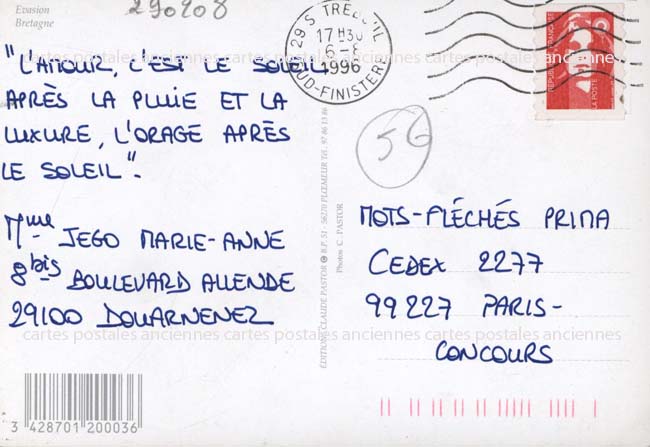 Evasion
Bretagne
290208
"L'AMOUR, C'EST LE SOLEIL
APRÈS LA PLUIE ET LA
LUXURE, L'ORAGE APRÈS
LE SOLEIL".
Mme JEGO MARIE-ANNE
8bis BOULEVARD ALLENDE
29100 DOUARNENEZ
3 428701 200036
EDITIONS CLAUDE PASTOR B.P. 51 - 56270 PLOEMEUR Tél. 97 86 13 86
Photos C. PASTOR
17 H30
6-8
1996
SUD-FINISTERE
LA POSTE
56
MOTS-FLÉCHÉS PRIMA
CEDEX 2277
99227 PARIS-
CONCOURS
cartes postales anciennes cartes postales anciennes cartes postales anciennes
cartes postales anciennes cartes postales anciennes cartes postales anciennes